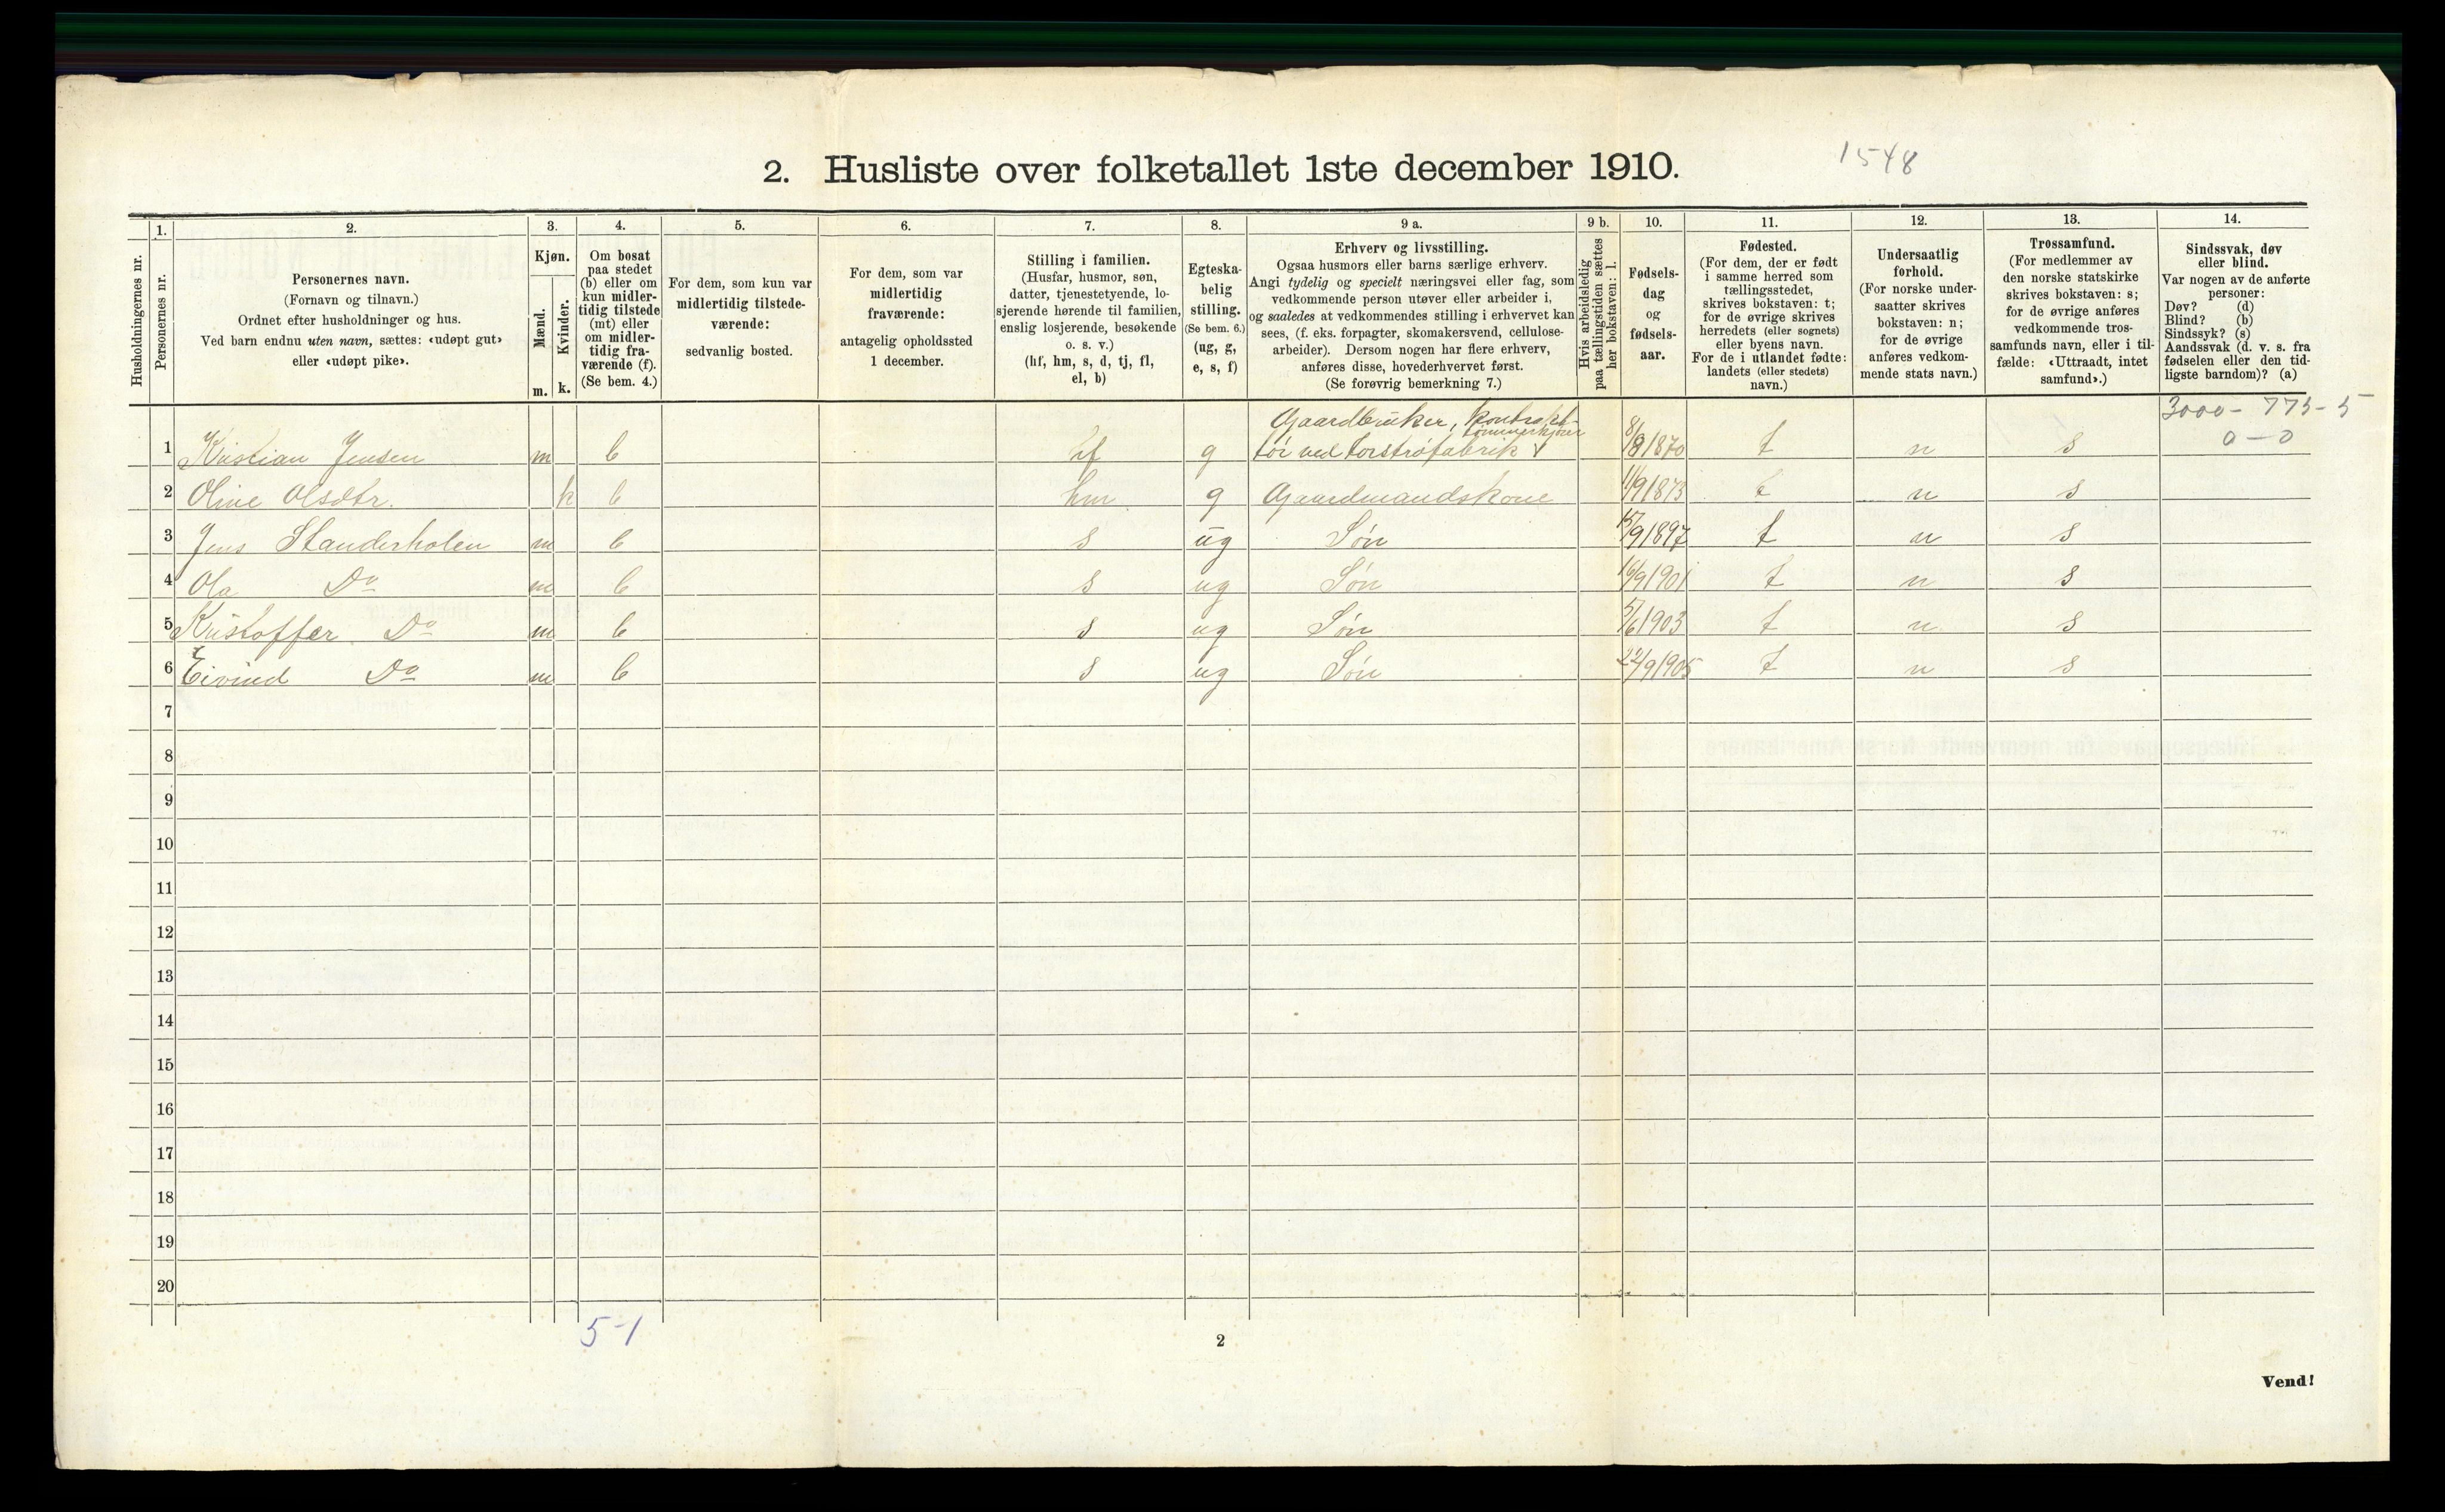 2. Husliste over folketallet 1ste december 1910.
1548
Husholdningernes nr.
1.
Personernes nr.
2.
Personernes navn.
(Fornavn og tilnavn.)
Ordnet efter husholdninger og hus.
Ved barn endnu uten navn, sættes: «udøpt gut»
eller «udøpt pike».
3.
Kjøn.
Mænd.
Kvinder.
m.
k.
4.
Om bosat
paa stedet
(b) eller om
kun midler-
tidig tilstede
(mt) eller
om midler-
tidig fra-
værende (f).
(Se bem. 4.)
5.
For dem, som kun var
midlertidig tilstede-
værende:
sedvanlig bosted.
6.
For dem, som var
midlertidig
fraværende:
antagelig opholdssted
1 december.
7.
Stilling i familien.
(Husfar, husmor, søn,
datter, tjenestetyende, lo-
sjerende hørende til familien,
enslig losjerende, besøkende
o. s. v.)
(hf, hm, s, d, tj, fl,
el, b)
8.
Egteska-
belig
stilling.
(Se bem. 6.)
(ug, g,
e, s, f)
9 a.
Erhverv og livsstilling.
Ogsaa husmors eller barns særlige erhverv.
Angi tydelig og specielt næringsvei eller fag, som
vedkommende person utøver eller arbeider i,
og saaledes at vedkommendes stilling i erhvervet kan
sees, (f. eks. forpagter, skomakersvend, cellulose-
arbeider). Dersom nogen har flere erhverv,
anføres disse, hovederhvervet først.
(Se forøvrig bemerkning 7.)
9 b.
Hvis arbeidsledig
paa tællingstiden sættes
her bokstaven: l.
10.
Fødsels-
dag
og
fødsels-
aar.
11.
Fødested.
(For dem, der er født
i samme herred som
tællingsstedet,
skrives bokstaven: t;
for de øvrige skrives
herredets (eller sognets)
eller byens navn.
For de i utlandet fødte:
landets (eller stedets)
navn.)
12.
Undersaatlig
forhold.
(For norske under-
saatter skrives
bokstaven: n;
for de øvrige
anføres vedkom-
mende stats navn.)
13.
Trossamfund.
(For medlemmer av
den norske statskirke
skrives bokstaven: s;
for de øvrige anføres
vedkommende tros-
samfunds navn, eller i til-
fælde: «Uttraadt, intet
samfund».)
14.
Sindssvak, døv
eller blind.
Var nogen av de anførte
personer:
Døv? (d)
Blind? (b)
Sindssyk? (s)
Aandssvak (d. v. s. fra
fødselen eller den tid-
ligste barndom)? (a)
3000 - 775 - 5
0 - 0
Gaardbruker, kontrak-
tømmerkjører
1 Kristian Jensen m b hf g tør ved torstrøfabrik & 8/8 1870 t n s
2 Oline Olsdtr. k b hm g Gaardmandskone 11/9 1873 t n s
3 Jens Standerholen m b s ug Søn 15/9 1897 t n s
4 Ola Do m b s ug Søn 16/9 1901 t n s
5 Kristoffer Do m b s ug Søn 5/6 1903 t n s
6 Eivind Do m b s ug Søn 22/9 1905 t n s
7
8
9
10
11
12
13
14
15
16
17
18
19
20
5-1
2
Vend!